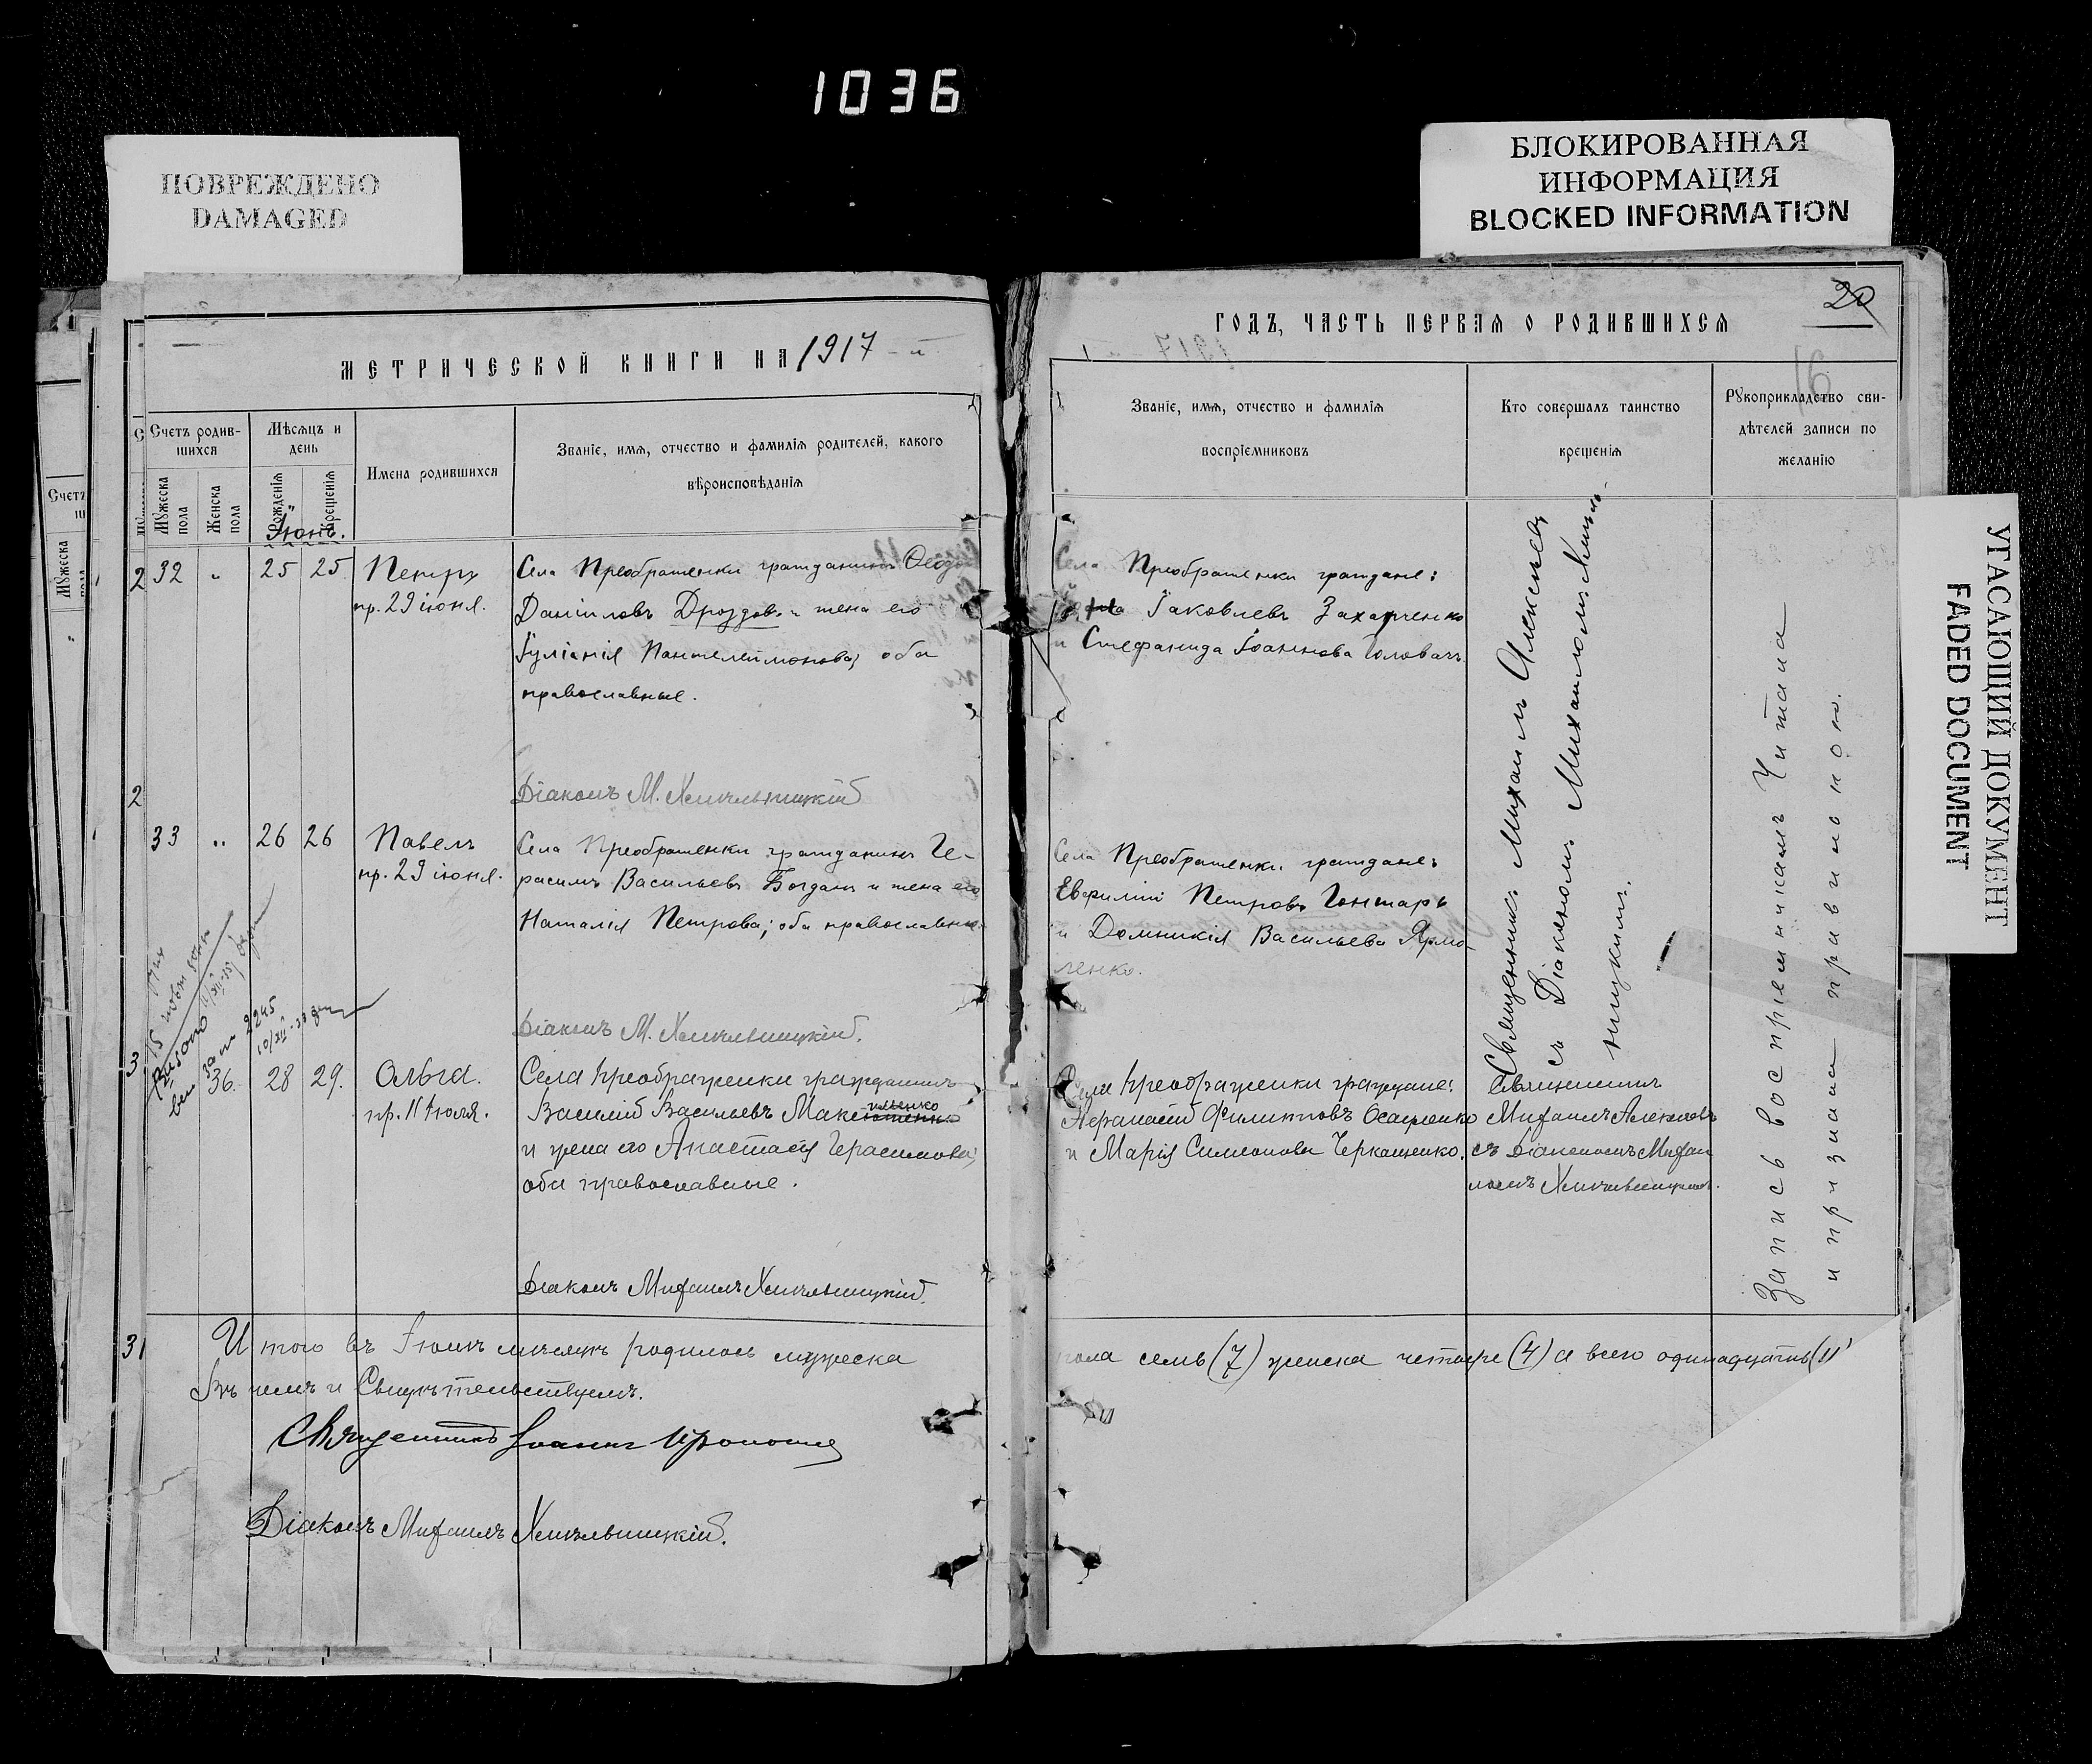 1036
ПОВРЕЖДЕНО
DAMAGED
БЛОКИРОВАННАЯ
ИНФОРМАЦИЯ
BLOCKED INFORMATION
УГАСАЮЩИЙ ДОКУМЕНТ
FADED DOCUMENT
МЕТРИЧЕСКОЙ КНИГИ НА 1917-й
Счетъ родив-
шихся
Мѣсяцъ и
день
Мужеска
пола
Женска
пола
Рожденія
Крещенія
Имена родившихся
Званіе, имя, отчество и фамилія родителей, какого
вѣроисповѣданія
Іюнь.
32 " 25 25 Петръ
пр. 29 іюня.
Села Преображенки гражданинъ
Даніиловъ Дроздовъ и жена его
Іуліанія Пантелеимонова, оба
православные.
Діаконъ М. Хмѣльницкій
33 " 26 26 Павелъ
пр. 29 іюня.
Села Преображенки гражданинъ Ге-
расимъ Васильевъ Богданъ и жена его
Наталія Петрова; оба православные.
Діаконъ М. Хмѣльницкій.
36. 28 29. Ольга.
пр. 11 Іюля.
Села Преображенки гражданинъ
Василій Васильевъ Макс
именко
и жена его Анастасія Герасимова;
оба православные.
Діаконъ Михаилъ Хмѣльницкій.
Итого въ Іюнѣ мѣсяцѣ родилось мужеска
Въ чемъ и Свидѣтельствуемъ.
Священникъ Іоаннъ
Діаконъ Михаилъ Хмѣльницкій.
ГОДЪ, ЧАСТЬ ПЕРВАЯ О РОДИВШИХСЯ
20
16
Званіе, имя, отчество и фамилія
воспріемниковъ
Кто совершалъ таинство
крещенія
Рукоприкладство сви-
дѣтелей записи по
желанію
Села Преображенки граждане:
Іаковлевъ Захарченко
и Стефанида Іоаннова Головачъ
Села Преображенки граждане:
Евфимій Петровъ Гончаръ
и Домникія Васильева Ярмо-
ленко.
Села Преображенки граждане:
Афанасій Филипповъ
и Марія Симеонова Черкащенко.
Священникъ Михаилъ Алексѣевъ
съ Діакономъ Михаиломъ Хмѣль-
ницкимъ.
Священникъ
Михаилъ Алексѣевъ
съ Діакономъ Михаи
ломъ Хмѣльницкимъ.
Запись воспріемникамъ читана
и признана правильною.
пола семь (7) женска четыре (4) а всего одинадцать (11)